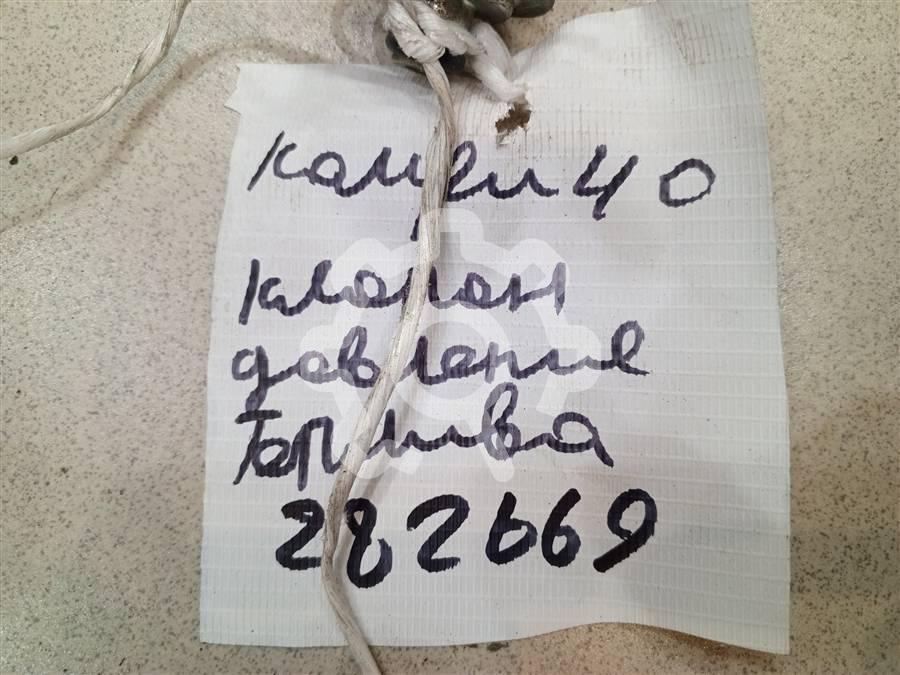 Камри 40
клапан
давление
Топлива
282669